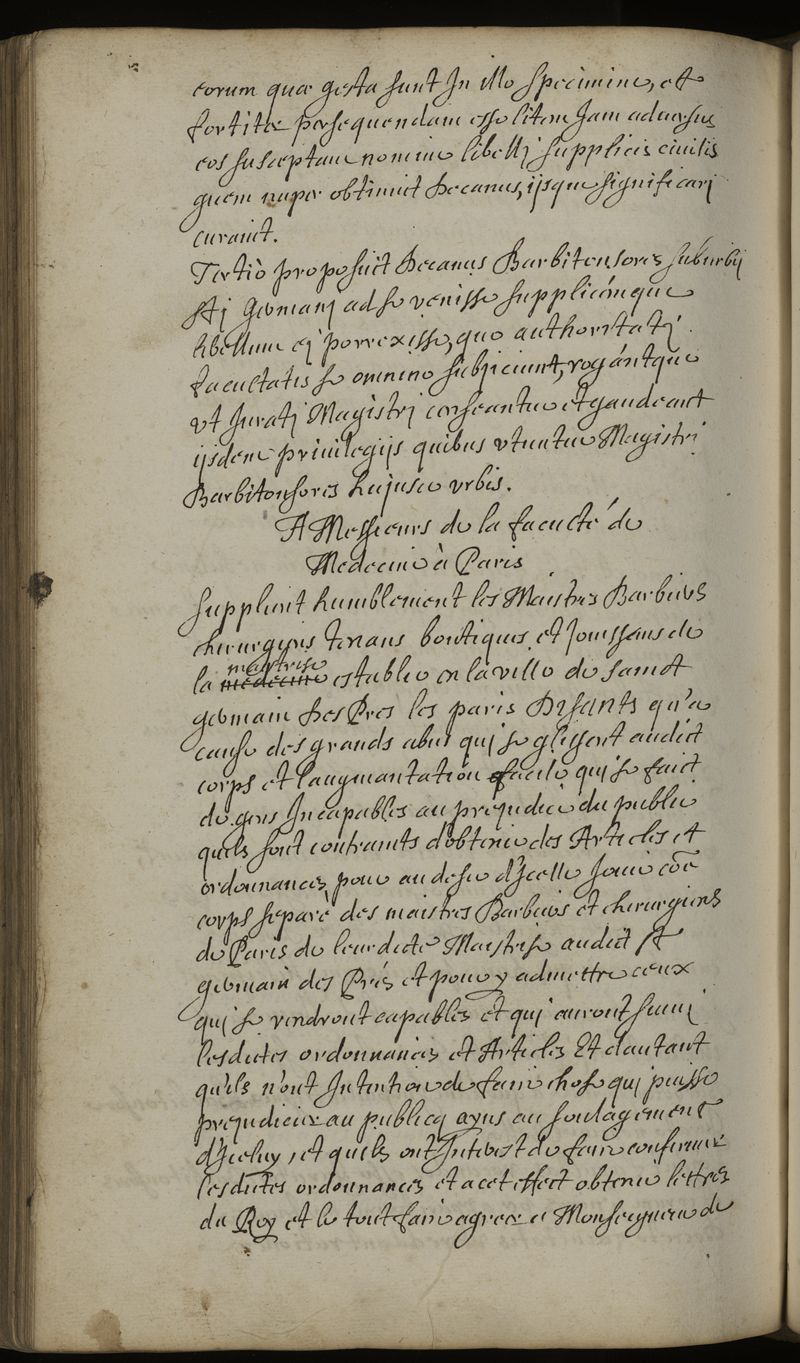 eorum quæ gesta sunt In illo specimine, et
fortiter persequendam esse litem Jam aduersus
eos susceptam nomine libellj supplicis ciuilis
quem nuper obtinuit Decanus, ijsque significarj
curauit.
Tertiò proposuit Decanus Barbitonsores suburbij
Stj Germanj ad se venisse supplicémque
libellum ej porrexisse, quo authoritatj
facultatis se omnino subjiciunt, rogántque
vt Juratj Magistrj censeantur et gaudeant
ijsdem priuilegijs quibus vtuntur Magistri
Barbitonsores hujusce vrbis.
A Messieurs de la faculté de
Medecine à Paris
Supplient humblement les Maistres Barbiers
chirurgiens tenans boutiques et Jouissans de
la maytrise establie en la ville de sainct
germain Des Prez les paris Disants qu'a
cause des grands abus quj se glissent audict
corps et laugmantation facile quj se faict
de gens Incapables au prejudice du public
quils sont contraints d'obtenir des Articles et
ordonnances pour au desir d'Jcelle Jouir cõe
corps separé des maistres Barbiers et chirurgiens
de Paris de leurdicte Maistrise audict St
germain des Prés et pour y admettre ceux
quj se rendront capables et quj auront suiuj
lesdictes ordonnances et Articles Et dautant
qu'ils n'ont Intention de faire chose quj puisse
prejudicier au publicq ayns au soulagement
d'Jceluy, et quils ont Interest de faire confirmer
lesdictes ordonnances et a cet effect obtenir lettres
du Roy et le tout faire agreer a Monseigneur de